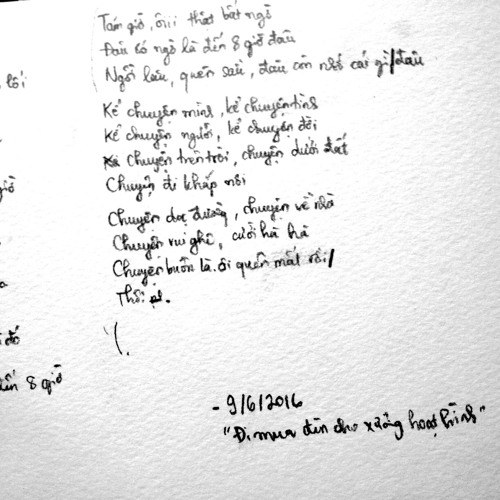 Tám giờ, ôiii thật bất ngờ
Đâu có ngờ là đến 8 giờ đâu
Ngồi lâu, quên sầu, đâu còn nhớ cái gì/đâu
Kể chuyện mình, kể chuyện tình
Kể chuyện người, kể chuyện đời
Chuyện trên trời, chuyện dưới đất
Chuyện đi khắp nơi
Chuyện dọc đường, chuyện về nhà
Chuyện vui ghê, cười hà hà
Chuyện buồn là. ôi quên mất rồi/
Thôi
lối
giờ
a
đó
đến 8 giờ
- 9/6/2016
"Đi mua đèn cho xưởng hoạt hình"